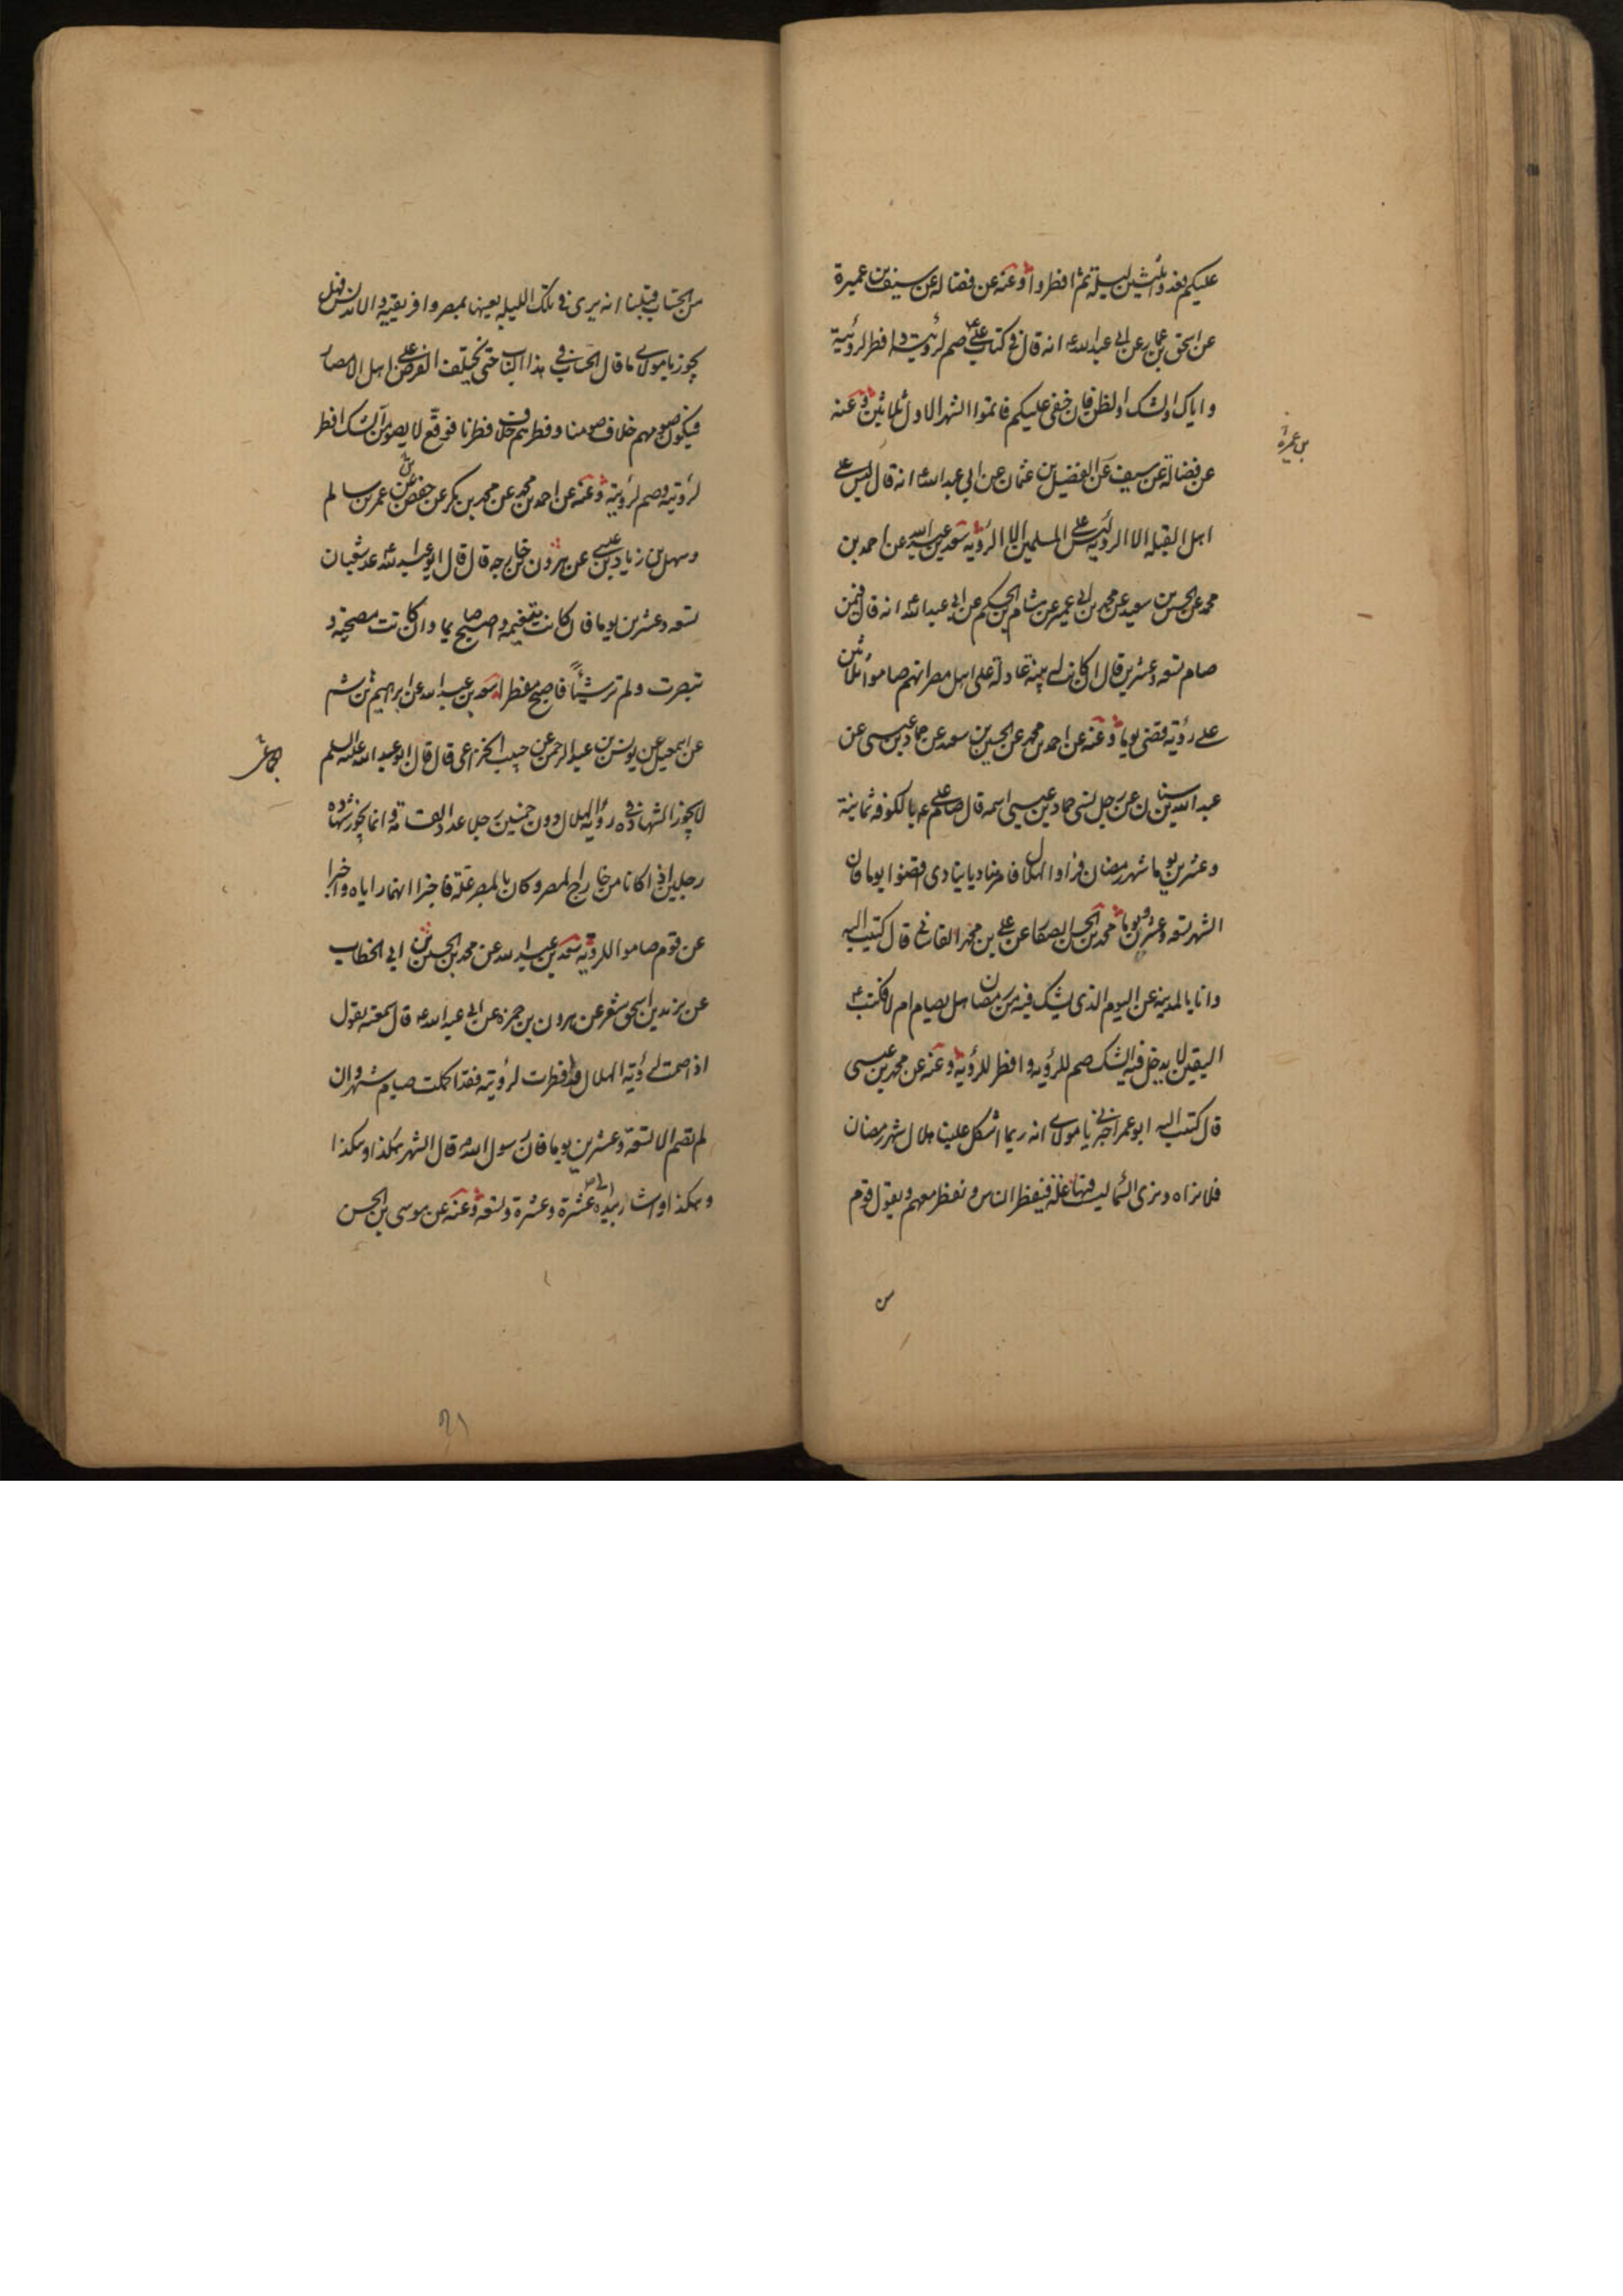 عليكم فعدوا ثلثين ليلة ثم افطروا وعنه عن فضاله عن سيف بن عميرة
عن اسحق بن عمار عن ابي عبد الله ع انه قال في كتاب علي ع صم لرؤيته و افطر لرؤيته
و اياك و الشك و الظن فان خفي عليكم فاتموا الشهر الاول ثلاثين وعنه
عن فضالة عن سيف عن الفضيل بن عثمان عن ابي عبد الله ع انه قال ليس على
اهل القبله الا الرؤيه ليس على المسلمين الا الرؤيه سعد بن عبد الله عن احمد بن
محمد عن الحسين بن سعيد عن محمد بن ابي عمير عن هشام بن الحكم عن ابي عبد الله ع انه قال فيمن
صام تسعه و عشرين قال ان كانت له بينة عادلة على اهل مصر انهم صاموا ثلاثين
على رؤية قضى يوما وعنه عن احمد بن محمد عن الحسين بن سعيد عن حماد بن عيسى عن
عبد الله بن سنان عن رجل نسي حماد بن عيسى اسمه قال صام علي ع بالكوفه ثمانية
و عشرين يوما شهر رمضان فراوا الهلال فامر مناديا ينادي اقضوا يوما فان
الشهر تسعه و عشرون يوما محمد بن الحسن الصفار عن علي بن محمد القاساني قال كتبت اليه
و انا بالمدينة عن اليوم الذي يشك فيه من رمضان هل يصام ام لا فكتب ع
اليقين لا يدخل فيه الشك صم للرؤيه و افطر للرؤيه وعنه عن محمد بن عيسى
قال كتب اليه ابو عمر اخبرني يا مولاي انه ربما اشكل علينا هلال شهر رمضان
فلا نراه و نرى السماء ليست فيها علة فيفطر الناس و نفطر معهم و يقول قوم
من الحساب قبلنا انه يرى في تلك الليله بعينها بمصر و افريقيه و الاندلس فهل
يجوز يا مولاي ما قال الحساب في هذا الباب حتى يختلف الفرض على اهل الامصار
فيكون صومهم خلاف صومنا و فطرهم خلاف فطرنا فوقع لا يصومن الشك افطر
لرؤيته و صم لرؤيته وعنه عن احمد بن محمد عن محمد بن بكر عن حفص عن عمر بن سالم
و سهل بن زياد عن عيسى عن هرون بن خارجه قال قال ابو عبد الله ع عد شعبان
تسعه و عشرين يوما فان كانت متغيمه فاصبح صايما و ان كانت مصحيه و
تبصرت و لم تر شيئًا فاصبح مفطرا سعد بن عبد الله عن ابرهيم بن هاشم
عن اسمعيل عن يونس بن عبد الرحمن عن حبيب الخزاعى قال قال ابو عبد الله عليه السلم
لا يجوز الشهادة في رؤية الهلال دون خمسين رجلا عدد القسامة و انما يجوز شهادة
رجلين اذا كانا من خارج المصر و كان بالمصر علة فاخبرا انهما راياه و اخبرا
عن قوم صاموا للرؤيه سعد بن عبد الله عن محمد بن الحسين بن ابي الخطاب
عن يزيد بن اسحق شعر عن هرون بن حمزه عن ابي عبد الله ع قال سمعته يقول
اذا صمت لرؤية الهلال و افطرت لرؤيته فقد اكملت صيام شهر و ان
لم تصم الا تسعة و عشرين يوما فان رسول الله قال الشهر هكذا و هكذا
و هكذا و اشار بيده الى عشرة و عشرة و تسعه وعنه عن موسى بن الحسن